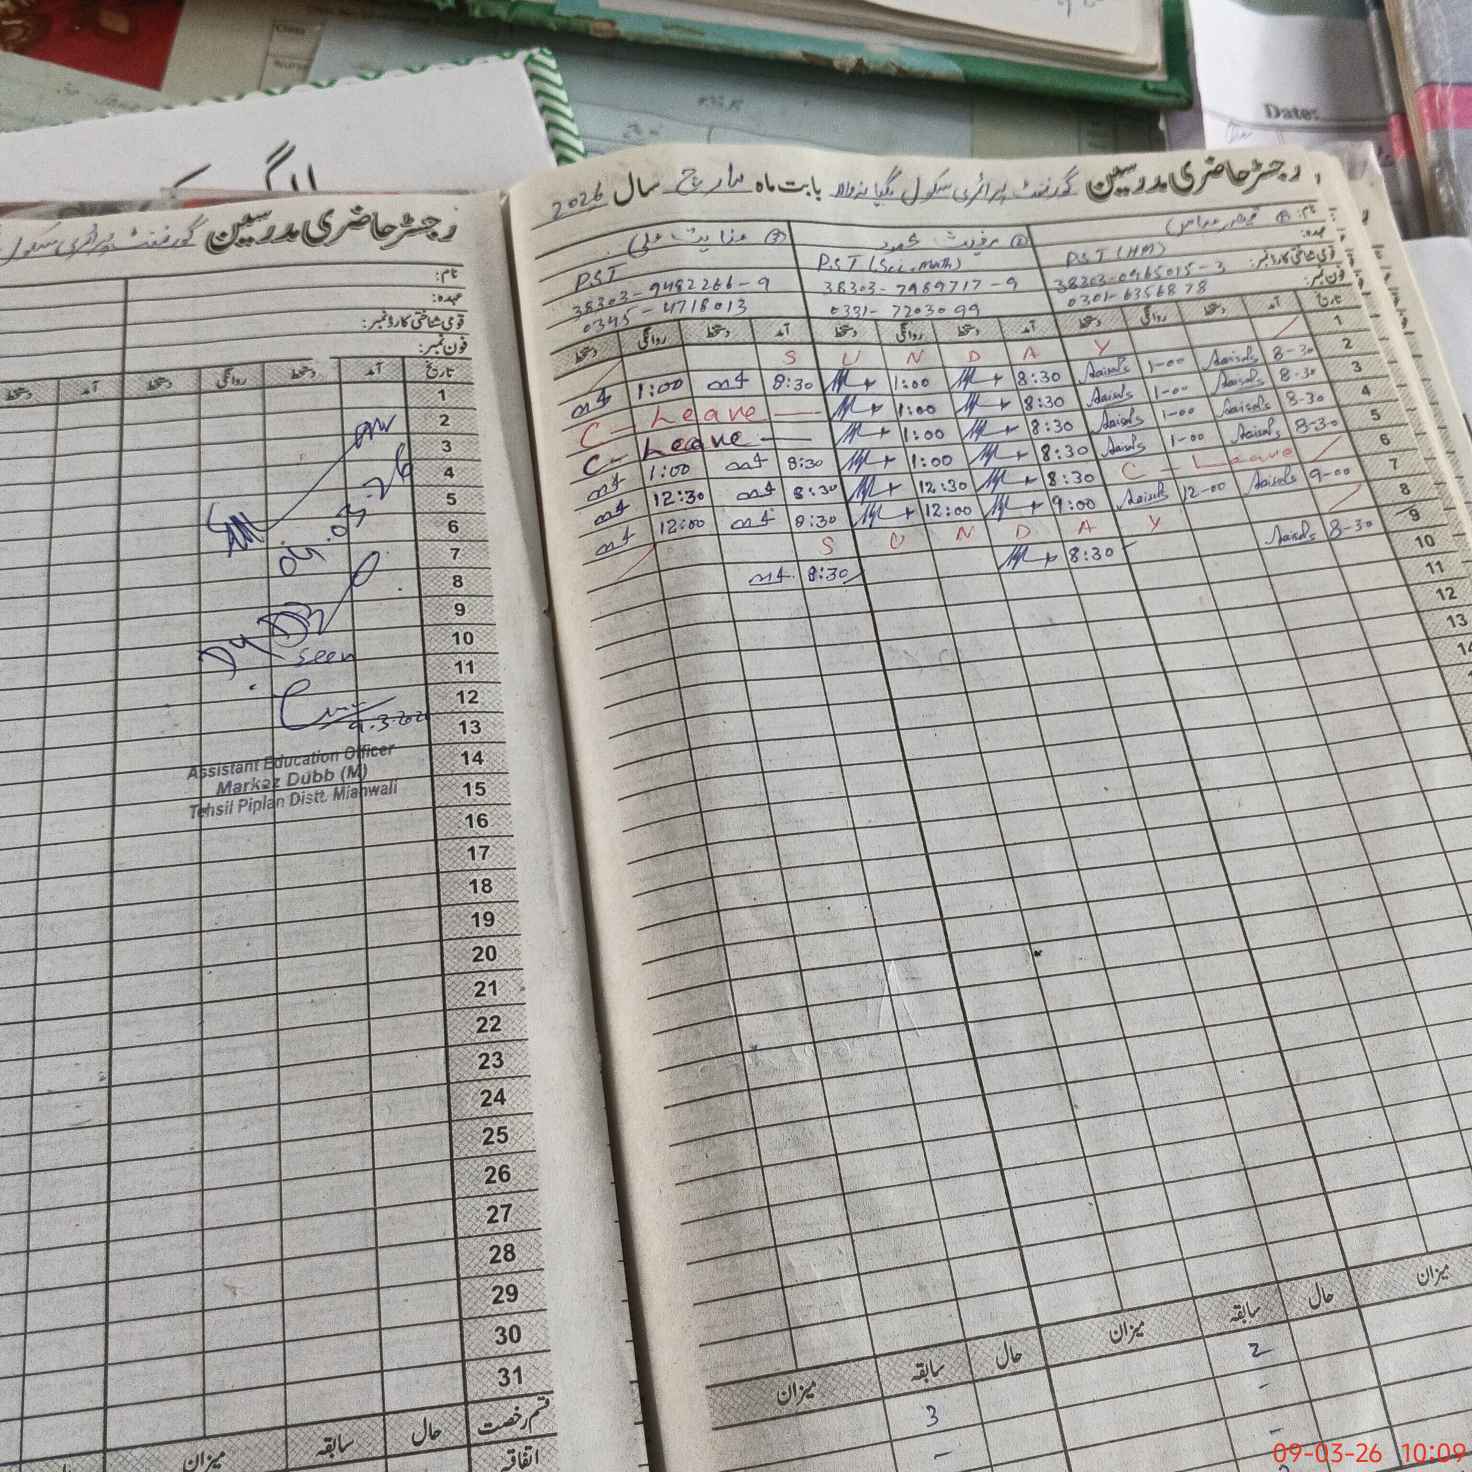 Date:
رجسٹر حاضری مدرسین گورنمنٹ پرائمری سکول بابت ماہ مارچ سال 2026
نام:
عہدہ:
قومی شناختی کارڈ نمبر:
فون نمبر:
P.S.T (HM)
38303-0965015-3
0301-6356878
P.S.T (Sci. Math)
38303-7989717-9
0331-7203099
عنایت علی
P.S.T
38303-9482266-9
0345-4718013
تاریخ آمد دستخط روانگی دستخط آمد دستخط روانگی دستخط آمد دستخط روانگی دستخط
1 S U N D A Y
2 8-30 1-00 8:30 1:00 8:30 1:00
3 8-30 1-00 8:30 1:00 C-Leave
4 8-30 1-00 8:30 1:00 C-Leave
5 8-30 1-00 8:30 1:00 8:30 1:00
6 C-Leave 8:30 12:30 8:30 12:30
7 9-00 12-00 9:00 12:00 8:30 12:00
8 S U N D A Y
9 8-30 8:30 8:30
10
11
12
13
میزان سابقہ حال میزان سابقہ حال میزان
3 2
رجسٹر حاضری مدرسین گورنمنٹ پرائمری سکول
نام:
عہدہ:
قومی شناختی کارڈ نمبر:
فون نمبر:
تاریخ آمد دستخط روانگی دستخط آمد دستخط
1
2
3
4
5
6
7
8
9
10
11
12
13
14
15
16
17
18
19
20
21
22
23
24
25
26
27
28
29
30
31
04.03.26
seen
9.3.202
Assistant Education Officer
Markaz Dubb (M)
Tehsil Piplan Distt. Mianwali
قسم رخصت حال سابقہ میزان
اتفاقیہ
09-03-26 10:09